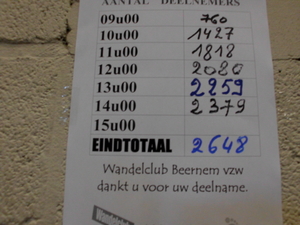 AANTAL DEELNEMERS
09u00 760
10u00 1427
11u00 1818
12u00 2020
13u00 2259
14u00 2379
15u00
EINDTOTAAL 2648
Wandelclub Beernem vzw
dankt u voor uw deelname.